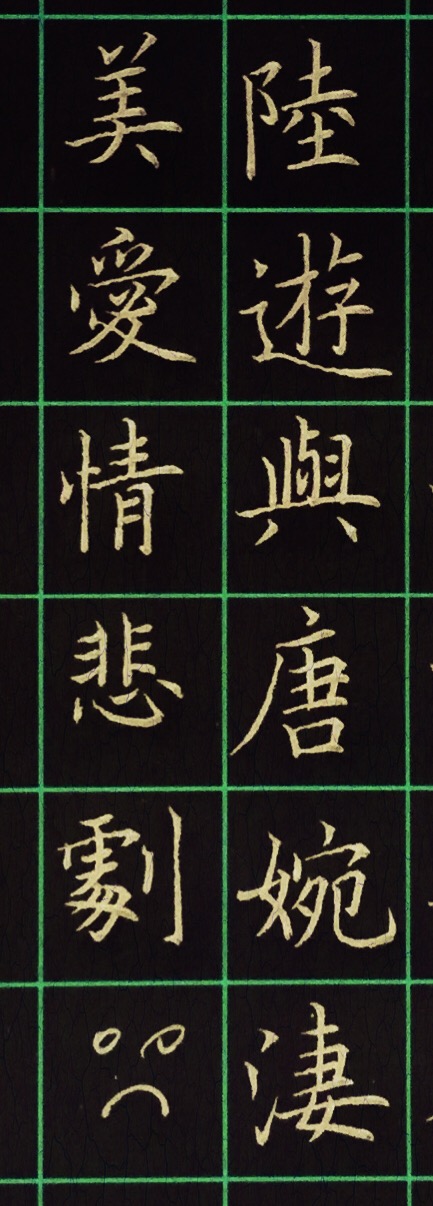 陸遊與唐婉淒
美愛情悲劇